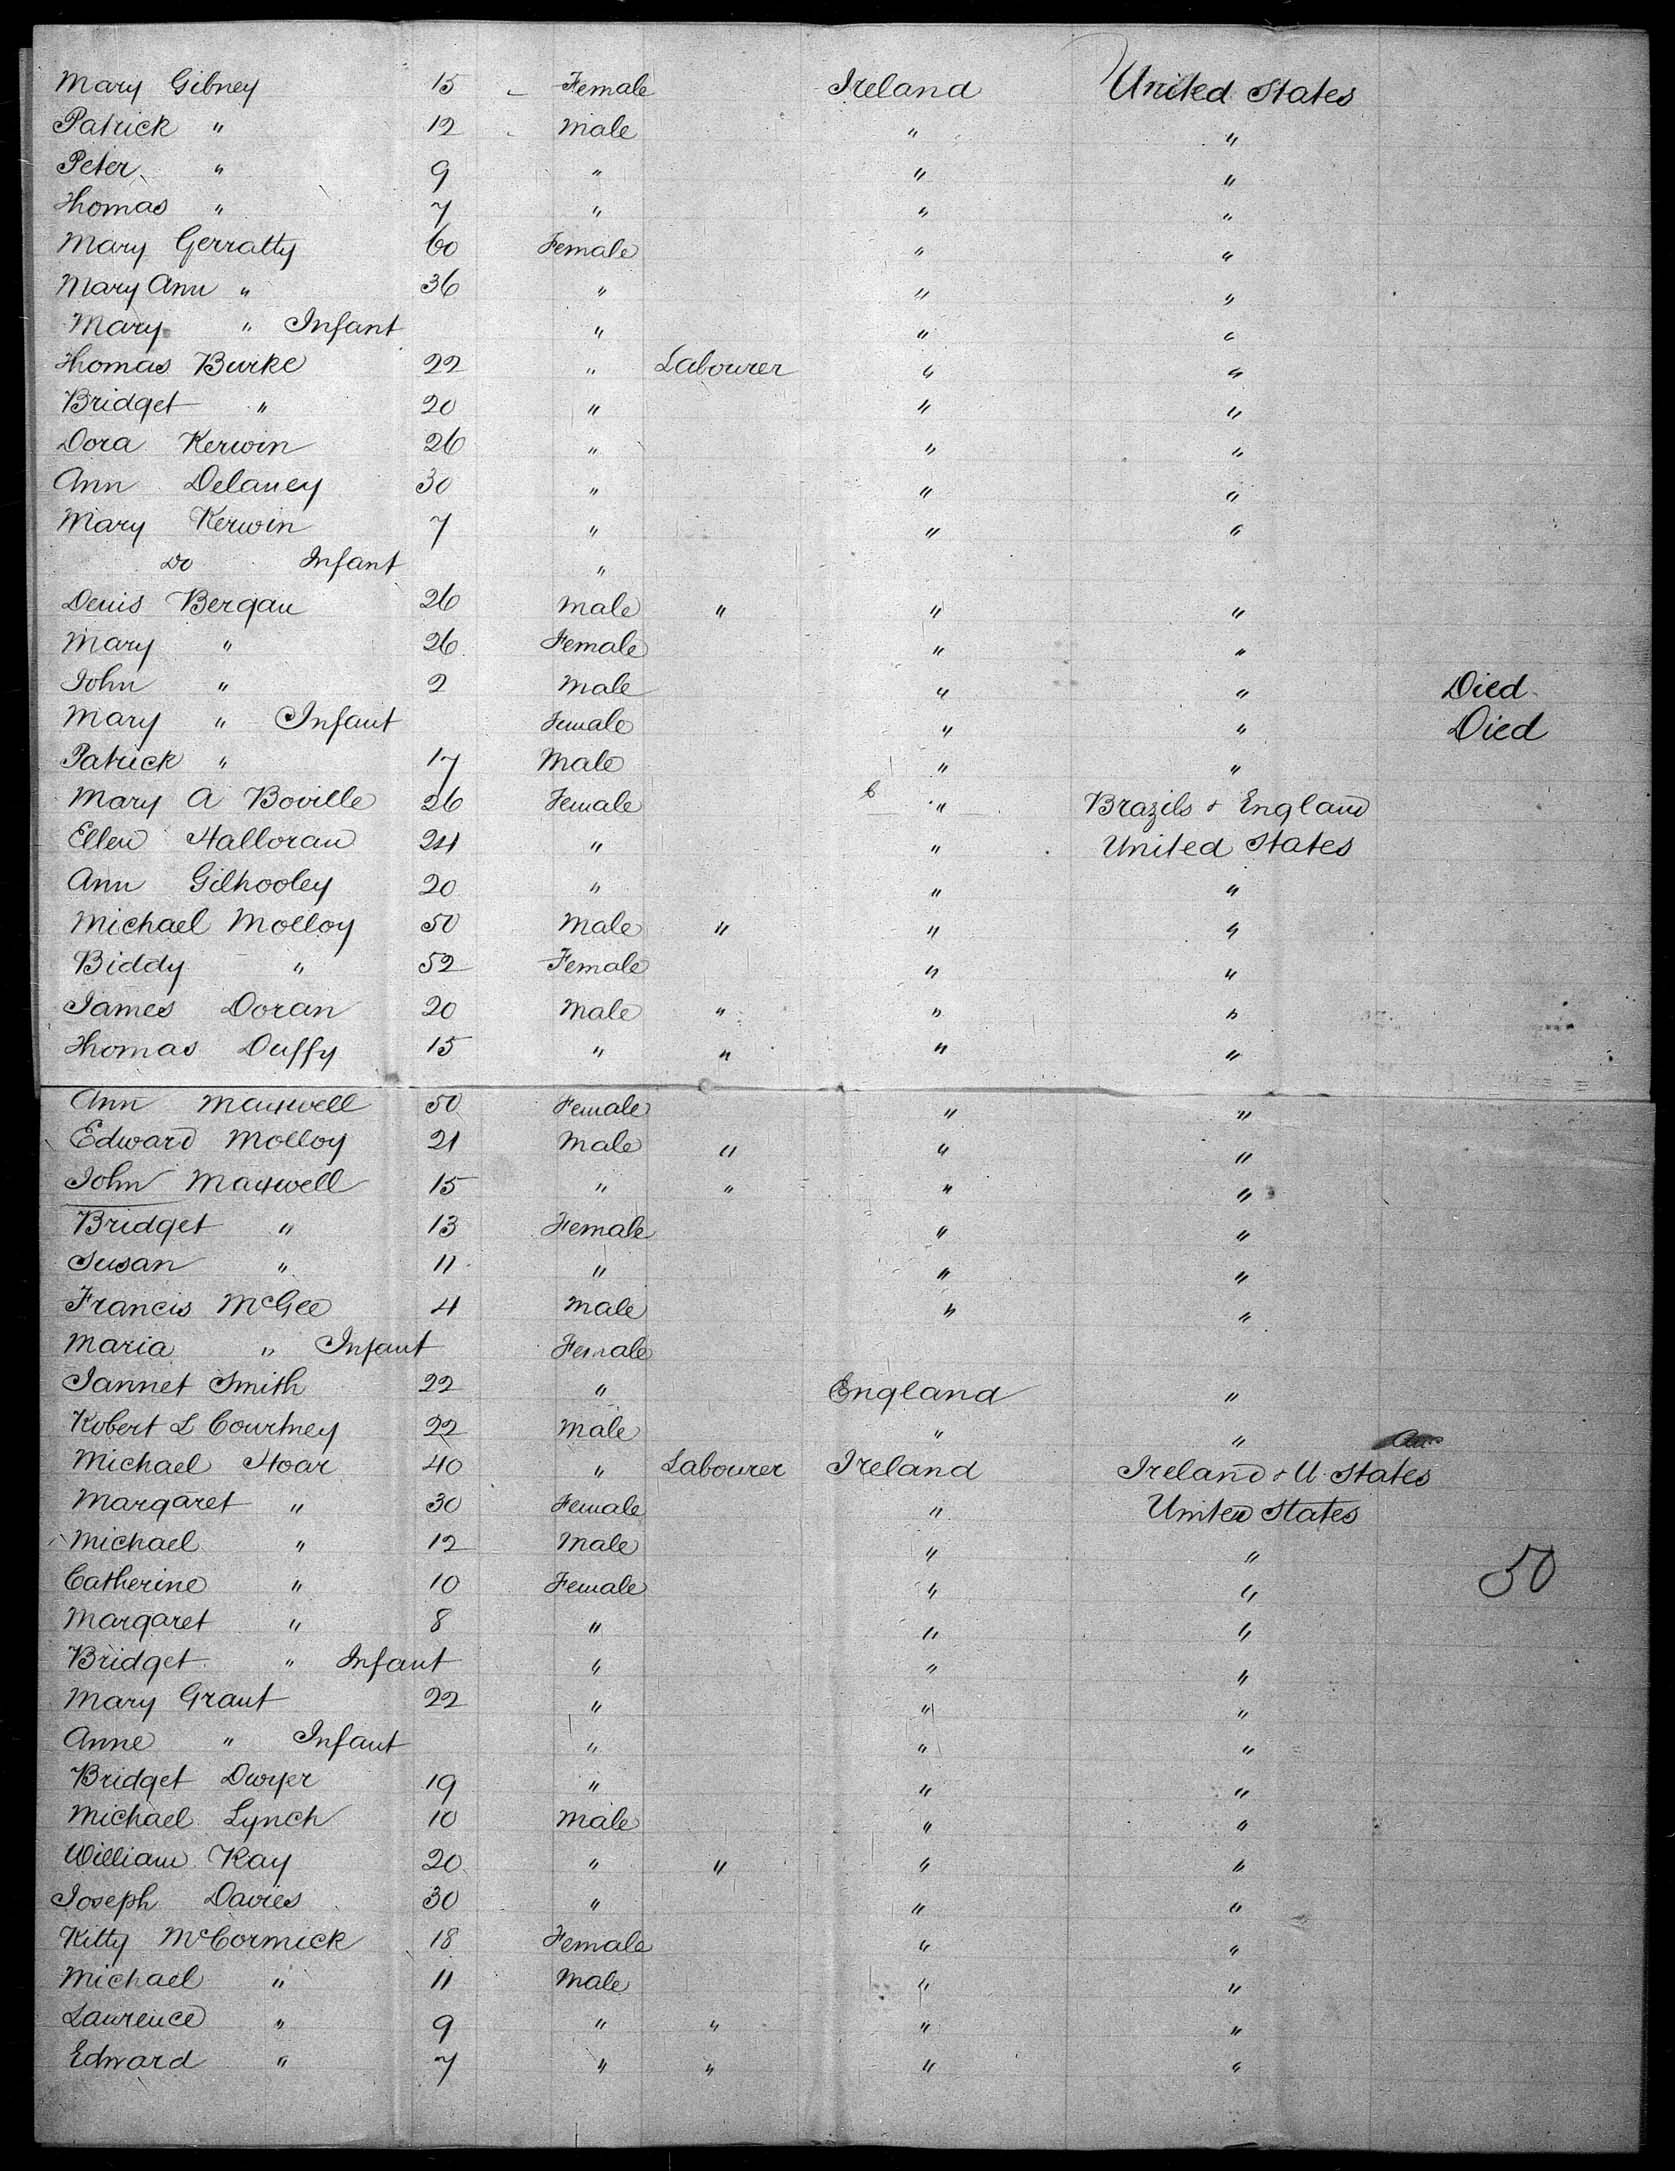 Mary Gibney 15 Female Ireland United States
Patrick " 12 Male " "
Peter " 9 " " "
Thomas " 7 " " "
Mary Gerratty 60 Female " "
Mary Ann " 36 " " "
Mary " Infant " " "
Thomas Burke 22 " Labourer " "
Bridget " 20 " " "
Dora Kerwin 26 " " "
Ann Delaney 30 " " "
Mary Kerwin 7 " " "
Do Infant "
Denis Bergan 26 Male " " "
Mary " 26 Female " "
John " 2 Male " " Died
Mary " Infant Female " " Died
Patrick " 17 Male " "
Mary A Boville 26 Female " Brazils & England
Ellen Halloran 24 " " United States
Ann Gilhooley 20 " " "
Michael Molloy 50 Male " " "
Biddy " 52 Female " "
James Doran 20 Male " " "
Thomas Duffy 15 " " " "
Ann Maxwell 50 Female " "
Edward Molloy 21 Male " " "
John Maxwell 15 " " " "
Bridget " 13 Female " "
Susan " 11 " " "
Francis McGee 4 Male " "
Maria " Infant Female
Jannet Smith 22 " England "
Robert L Courtney 22 Male " "
Michael Hoar 40 " Labourer Ireland Ireland & U. States
Margaret " 30 Female " United States
Michael " 12 Male " "
Catherine " 10 Female " " 50
Margaret " 8 " " "
Bridget " Infant " " "
Mary Grant 22 " " "
Anne " Infant " " "
Bridget Dwyer 19 " " "
Michael Lynch 10 Male " "
William Kay 20 " " " "
Joseph Davies 30 " " "
Kitty McCormick 18 Female " "
Michael " 11 Male " "
Laurence " 9 " " " "
Edward " 7 " " " "